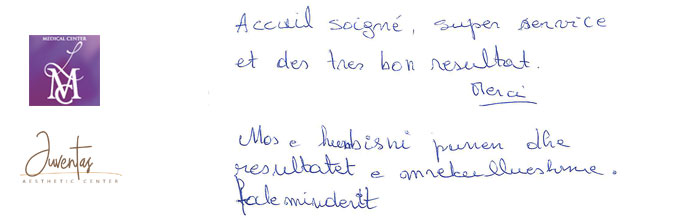 MEDICAL CENTER
LMC
Accueil soigné, super service
et des tres bon resultat.
Merci
Juventas
AESTHETIC CENTER
Mos e humbisni punen dhe
resultatet e mrekullueshme.
faleminderit